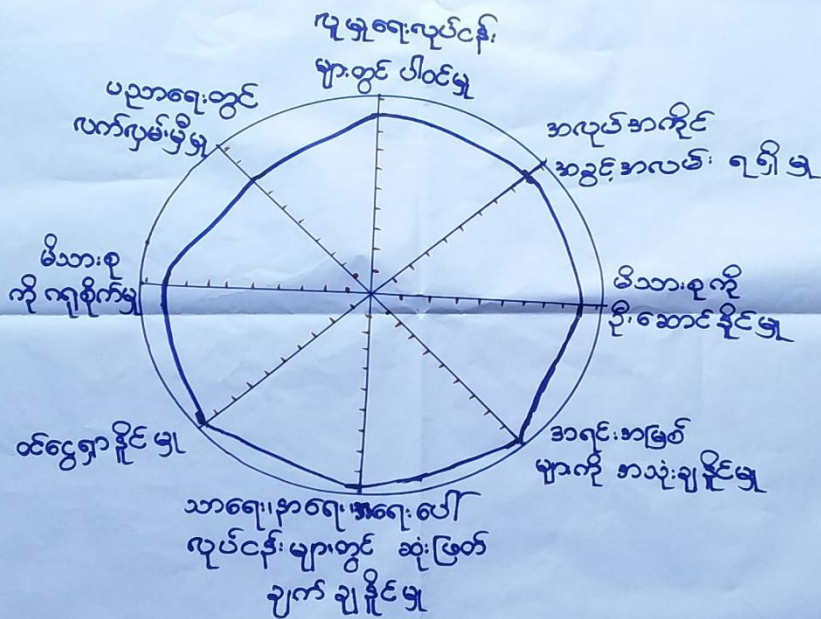 လူမှုရေးလုပ်ငန်း
များတွင် ပါဝင်မှု
အလုပ်အကိုင်
အခွင့်အလမ်း ရရှိမှု
မိသားစုကို
ဦးဆောင်နိုင်မှု
အရင်းအမြစ်
များကို အသုံးချနိုင်မှု
သာရေး၊နာရေး၊အရေးပေါ်
လုပ်ငန်းများတွင် ဆုံးဖြတ်
ချက် ချနိုင်မှု
ဝင်ငွေရှာနိုင်မှု
မိသားစု
ကို ဂရုစိုက်မှု
ပညာရေးတွင်
လက်လှမ်းမှီမှု